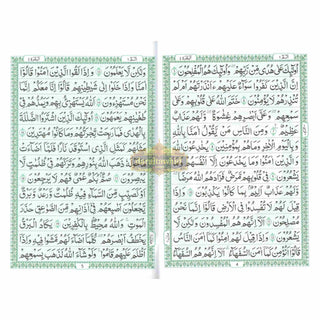 اُولٰٓئِكَ عَلٰى هُدًى مِّنْ رَّبِّهِمْ وَاُولٰٓئِكَ هُمُ الْمُفْلِحُوْنَ
اِنَّ الَّذِيْنَ كَفَرُوْا سَوَآءٌ عَلَيْهِمْ ءَاَنْذَرْتَهُمْ اَمْ لَمْ
تُنْذِرْهُمْ لَا يُؤْمِنُوْنَ خَتَمَ اللّٰهُ عَلٰى قُلُوْبِهِمْ وَعَلٰى
سَمْعِهِمْ وَعَلٰٓى اَبْصَارِهِمْ غِشَاوَةٌ وَّلَهُمْ عَذَابٌ
عَظِيْمٌ وَمِنَ النَّاسِ مَنْ يَّقُوْلُ اٰمَنَّا بِاللّٰهِ
وَبِالْيَوْمِ الْاٰخِرِ وَمَا هُمْ بِمُؤْمِنِيْنَ يُخٰدِعُوْنَ اللّٰهَ
وَالَّذِيْنَ اٰمَنُوْا وَمَا يَخْدَعُوْنَ اِلَّآ اَنْفُسَهُمْ وَمَا
يَشْعُرُوْنَ فِيْ قُلُوْبِهِمْ مَّرَضٌ فَزَادَهُمُ اللّٰهُ مَرَضًا
وَلَهُمْ عَذَابٌ اَلِيْمٌ بِمَا كَانُوْا يَكْذِبُوْنَ وَاِذَا
قِيْلَ لَهُمْ لَا تُفْسِدُوْا فِى الْاَرْضِ قَالُوْٓا اِنَّمَا نَحْنُ
مُصْلِحُوْنَ اَلَآ اِنَّهُمْ هُمُ الْمُفْسِدُوْنَ وَلٰكِنْ لَّا
يَشْعُرُوْنَ وَاِذَا قِيْلَ لَهُمْ اٰمِنُوْا كَمَآ اٰمَنَ النَّاسُ
قَالُوْٓا اَنُؤْمِنُ كَمَآ اٰمَنَ السُّفَهَآءُ اَلَآ اِنَّهُمْ هُمُ السُّفَهَآءُ
وَلٰكِنْ لَّا يَعْلَمُوْنَ وَاِذَا لَقُوا الَّذِيْنَ اٰمَنُوْا قَالُوْٓا
اٰمَنَّا وَاِذَا خَلَوْا اِلٰى شَيٰطِيْنِهِمْ قَالُوْٓا اِنَّا مَعَكُمْ اِنَّمَا
نَحْنُ مُسْتَهْزِءُوْنَ اَللّٰهُ يَسْتَهْزِئُ بِهِمْ وَيَمُدُّهُمْ فِيْ
طُغْيَانِهِمْ يَعْمَهُوْنَ اُولٰٓئِكَ الَّذِيْنَ اشْتَرَوُا الضَّلٰلَةَ
بِالْهُدٰى فَمَا رَبِحَتْ تِّجَارَتُهُمْ وَمَا كَانُوْا مُهْتَدِيْنَ
مَثَلُهُمْ كَمَثَلِ الَّذِى اسْتَوْقَدَ نَارًا فَلَمَّآ اَضَآءَتْ
مَا حَوْلَهٗ ذَهَبَ اللّٰهُ بِنُوْرِهِمْ وَتَرَكَهُمْ فِيْ ظُلُمٰتٍ لَّا
يُبْصِرُوْنَ صُمٌّۢ بُكْمٌ عُمْيٌ فَهُمْ لَا يَرْجِعُوْنَ
اَوْ كَصَيِّبٍ مِّنَ السَّمَآءِ فِيْهِ ظُلُمٰتٌ وَّرَعْدٌ وَّبَرْقٌ
يَجْعَلُوْنَ اَصَابِعَهُمْ فِيْٓ اٰذَانِهِمْ مِّنَ الصَّوَاعِقِ حَذَرَ
الْمَوْتِ وَاللّٰهُ مُحِيْطٌۢ بِالْكٰفِرِيْنَ يَكَادُ الْبَرْقُ
يَخْطَفُ اَبْصَارَهُمْ كُلَّمَآ اَضَآءَ لَهُمْ مَّشَوْا فِيْهِ وَاِذَآ
اَظْلَمَ عَلَيْهِمْ قَامُوْا وَلَوْ شَآءَ اللّٰهُ لَذَهَبَ بِسَمْعِهِمْ